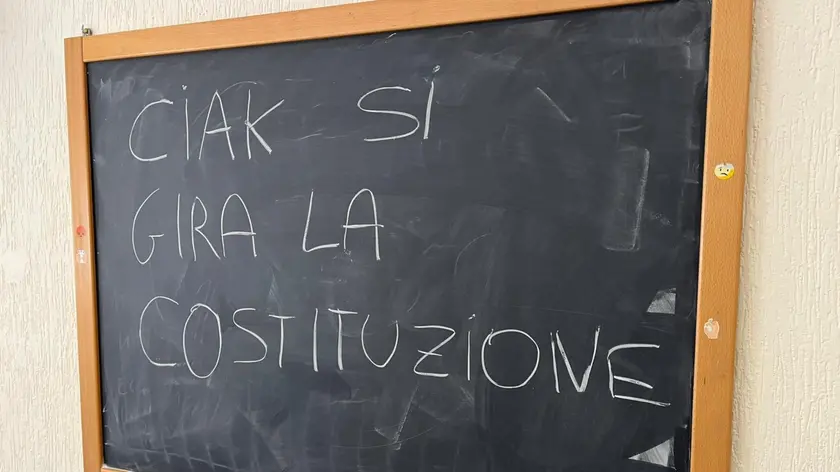 CiAK Si
GIRA LA
COSTITUZiONE